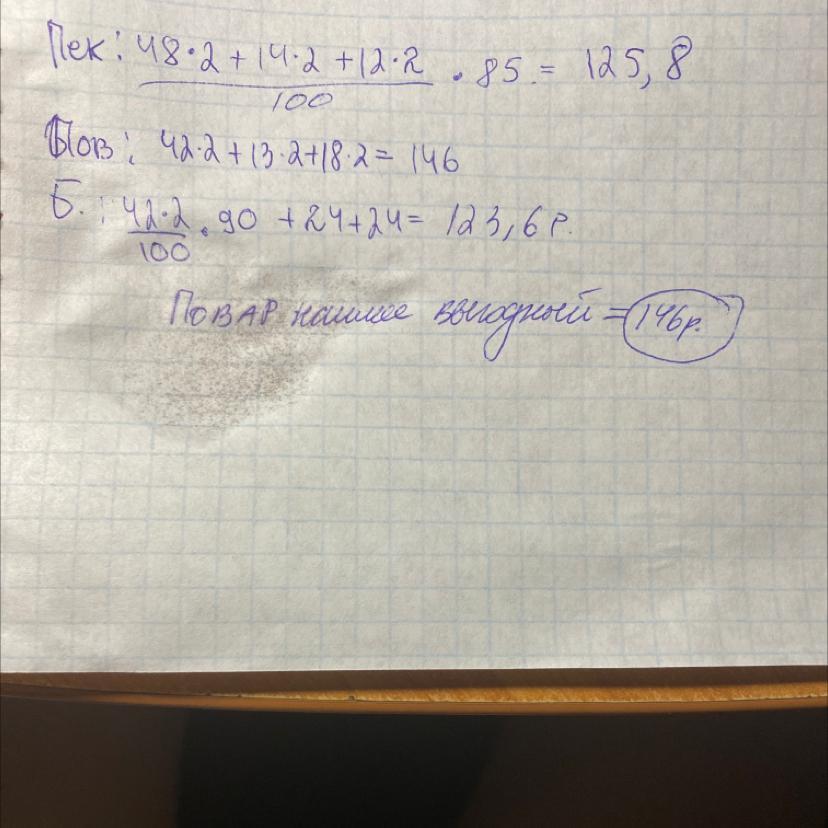 Пек: 48·2+14·2+12·2
100
· 85 = 125,8
Пов: 42·2+13·2+18·2= 146
Б.: 42·2
100
· 90 +24+24= 123,6 р.
Повар выгодный = 146р.